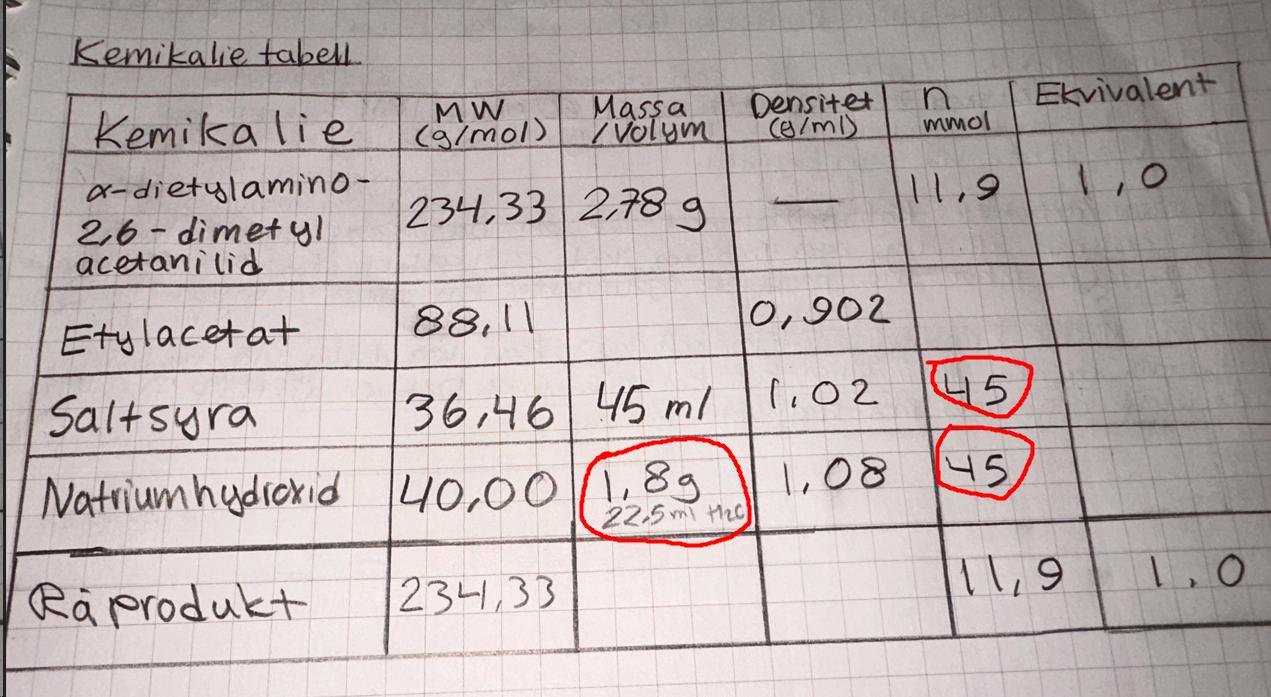 Kemikalie tabell
Kemikalie MW (g/mol) Massa /Volym Densitet (g/ml) n mmol Ekvivalent
α-dietylamino-
2,6-dimetyl
acetanilid 234,33 2,78 g — 11,9 1,0
Etylacetat 88,11 0,902
Saltsyra 36,46 45 ml 1,02 45
Natriumhydroxid 40,00 1,8g 1,08 45
22,5 ml H2O
Råprodukt 234,33 11,9 1,0